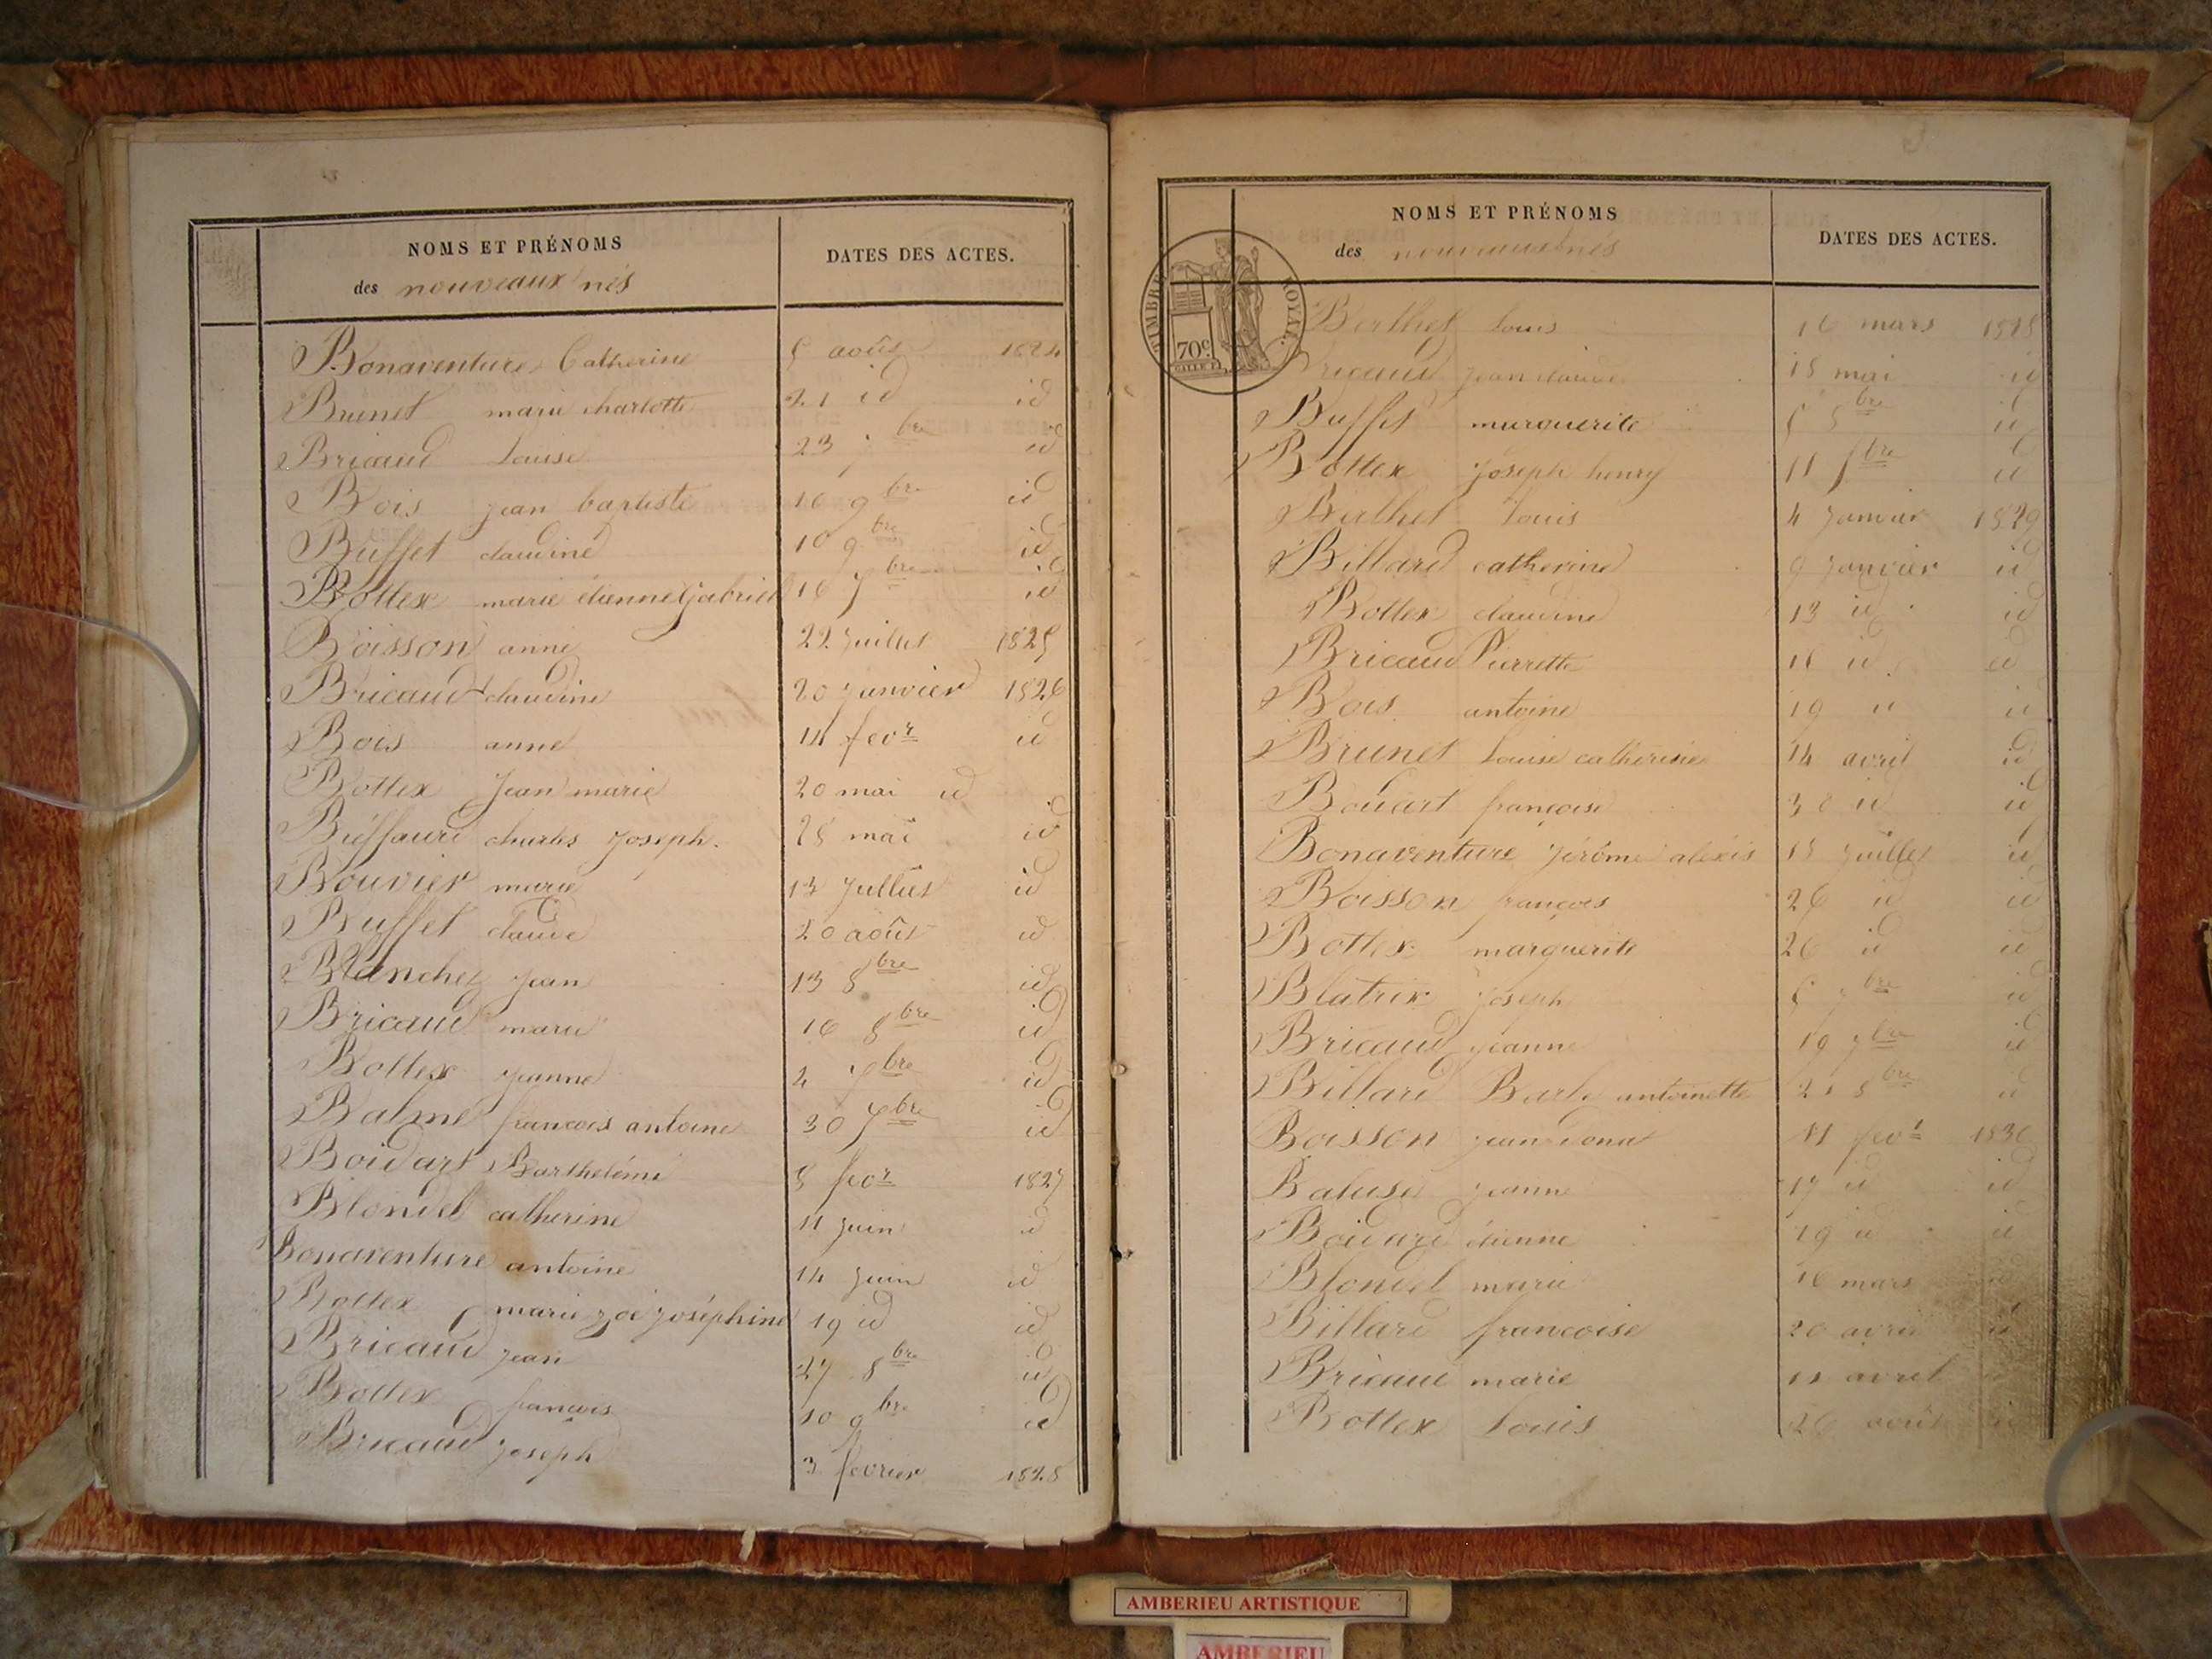 NOMS ET PRÉNOMS
des nouveaux nés
DATES DES ACTES.
Bonaventure Catherine 5 août 1824
Brunet marie charlotte 21 id id
Bricaud Louise 23 bre id
Bois jean baptiste 16 9bre id
Buffet claudine 10 9bre id
Bottex marie étienne Gabriel 16 bre id
Boisson anne 22 juillet 1825
Bricaud claudine 20 janvier 1826
Bois anne 14 fevr id
Bottex Jean marie 20 mai id
charles joseph. 28 mai id
Bouvier marie 13 jullet id
Buffet claude 20 août id
Blanchet jean 13 8bre id
Bricaud marie 16 8bre id
Bottex jeanne bre id
Balme francois antoine 30 bre id
Boidart Barthelémi 8 fevr 1827
Blondel catherine 11 juin id
Bonaventure antoine 14 juin id
Bottex marie zoé joséphine 19 id id
Bricaud jean 27 8bre id
Bottex francois 10 9bre id
Bricaud joseph 3 fevrier 1828
NOMS ET PRÉNOMS
des nouveaux nés
DATES DES ACTES.
TIMBRE ROYAL.
70c
Berthet Louis 16 mars 1828
Bricaud jean claude 18 mai id
Buffet marguerite bre id
Bottex Joseph henry 11 bre id
Berthet Louis 4 janvier 1829
Billard catherine 9 janvier id
Bottex claudine 13 id id
Bricaud Pierrette 16 id id
Bois antoine 19 id id
Brunet Louise catherine 14 avril id
françoise 30 id id
Bonaventure jérôme alexis 15 juillet id
Boisson françois 26 id id
Bottex marguerite 26 id id
Blatrix Joseph bre id
Bricaud jeanne 19 bre id
Billard Barbe antoinette 21 8bre id
Boisson jean donat 11 fevr 1830
jeanne 17 id id
Boidard étienne 19 id id
Blondel marie 16 mars id
Billard francoise 20 avril id
Bricaud marie 21 avril id
Bottex Louis 26 août id
AMBERIEU ARTISTIQUE
AMBERIEU